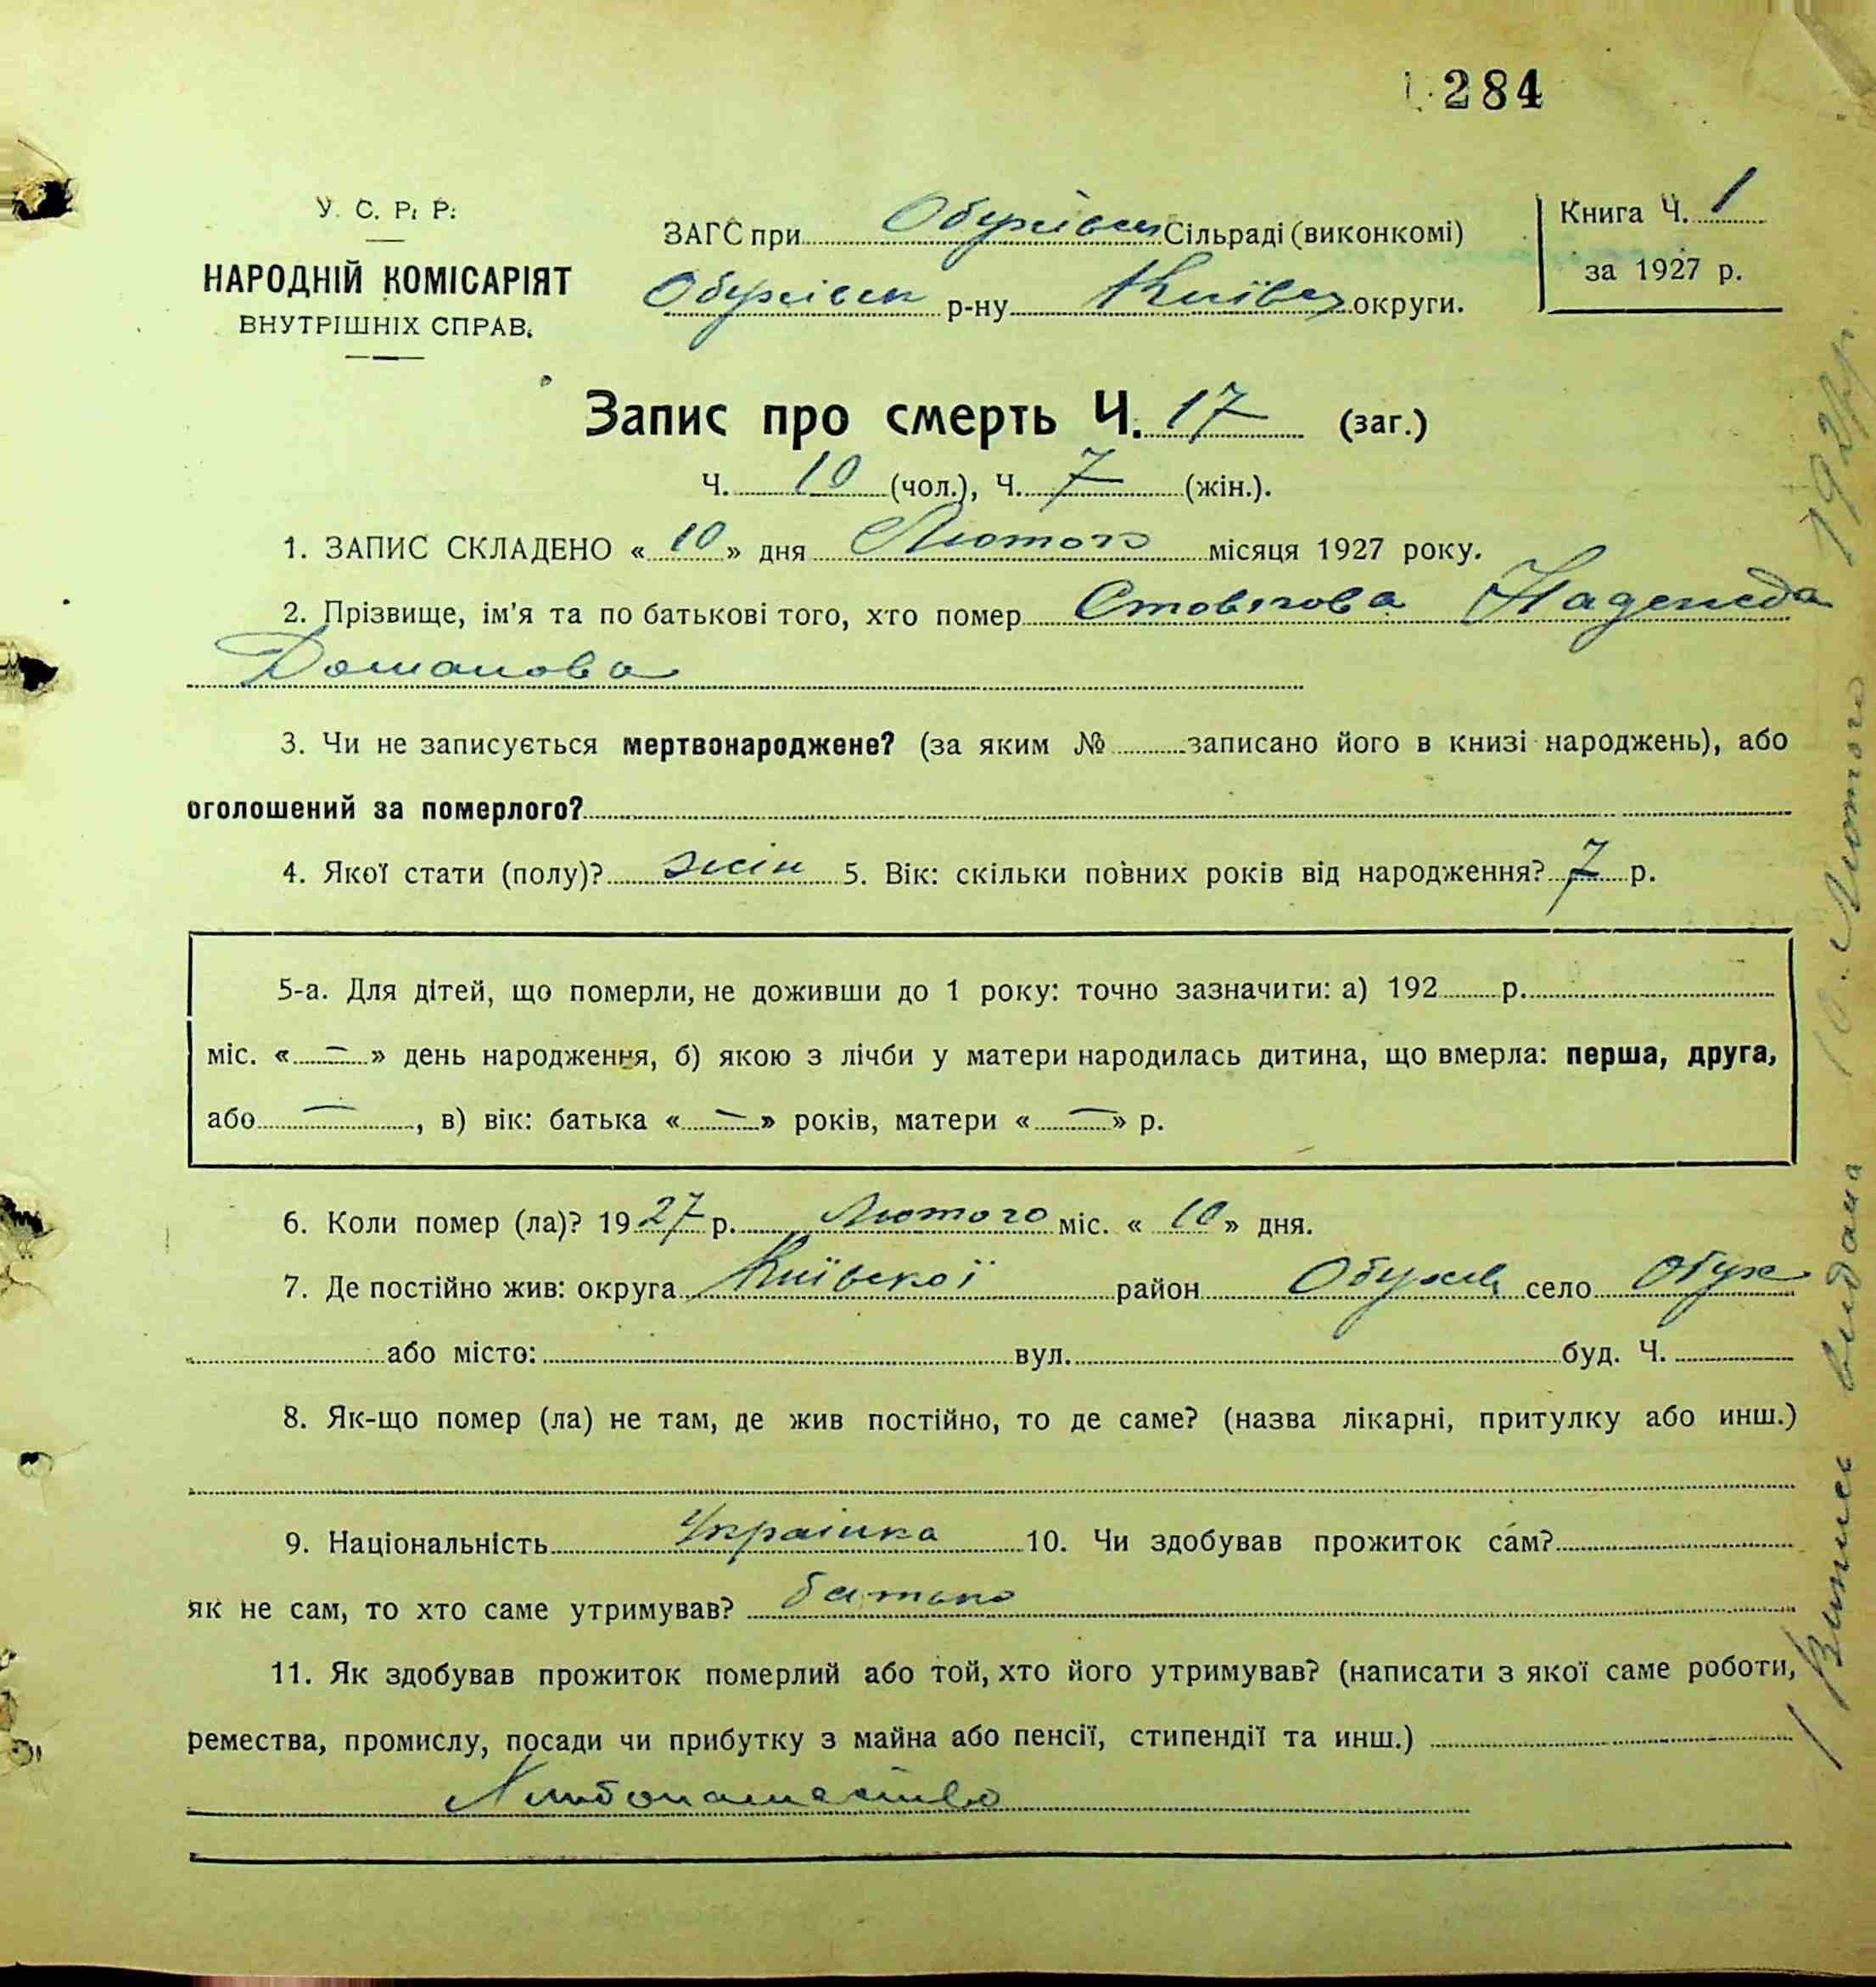 284
У. С. Р. Р.
НАРОДНІЙ КОМІСАРІЯТ
ВНУТРІШНІХ СПРАВ.
ЗАГС при Обухівск Сільраді (виконкомі)
Обухівск р-ну Київск округи.
Книга Ч. 1
за 1927 р.
Запис про смерть Ч. 17 (заг.)
Ч. 10 (чол.), Ч. 7 (жін.).
1. ЗАПИС СКЛАДЕНО « 10 » дня Лютого місяця 1927 року.
2. Прізвище, ім'я та по батькові того, хто помер Стовягова Надежда
Доманова
3. Чи не записується мертвонароджене? (за яким № записано його в книзі народжень), або
оголошений за померлого?
4. Якої стати (полу)? жін 5. Вік: скільки повних років від народження? 7 р.
5-а. Для дітей, що померли, не доживши до 1 року: точно зазначити: а) 192 р.
міс. « — » день народження, б) якою з лічби у матери народилась дитина, що вмерла: перша, друга,
або — , в) вік: батька « — » років, матери « — » р.
6. Коли помер (ла)? 1927 р. Лютого міс. « 10 » дня.
7. Де постійно жив: округа Київської район Обухів село Обух
або місто: вул. буд. Ч.
8. Як-що помер (ла) не там, де жив постійно, то де саме? (назва лікарні, притулку або инш.)
9. Національність Українка 10. Чи здобував прожиток сам?
як не сам, то хто саме утримував? батько
11. Як здобував прожиток померлий або той, хто його утримував? (написати з якої саме роботи,
ремества, промислу, посади чи прибутку з майна або пенсії, стипендії та инш.)
Хлібопашество
Витяг видана 10. Лютого 1927 р.